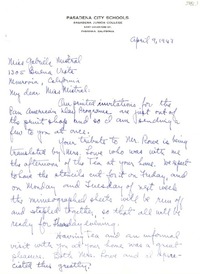 PASADENA CITY SCHOOLS
PASADENA JUNIOR COLLEGE
PASADENA, CALIFORNIA
April 9, 1947
Miss Gabrille Mistral
1305 Buena Vista
Monrovia, California
My dear Miss Mistral:
Our printed invitations for the
Pan American Day Programs, are just out of
the print shop and so I am sending a
few to you at once.
Your tribute to Mr. Rowe is being
translated by Mrs. Love who was with me
the afternoon of the Tea at your home. We expect
to have the stencils cut for it on Friday, and
on Monday and Tuesday of next week
the mimeographed sheets will be run off
and stapled together, so that all will be
ready for Tuesday evening.
Having Tea and an informal
visit with you at your home was a great
pleasure. Both Mrs. Love and I appre-
ciated this greatly.